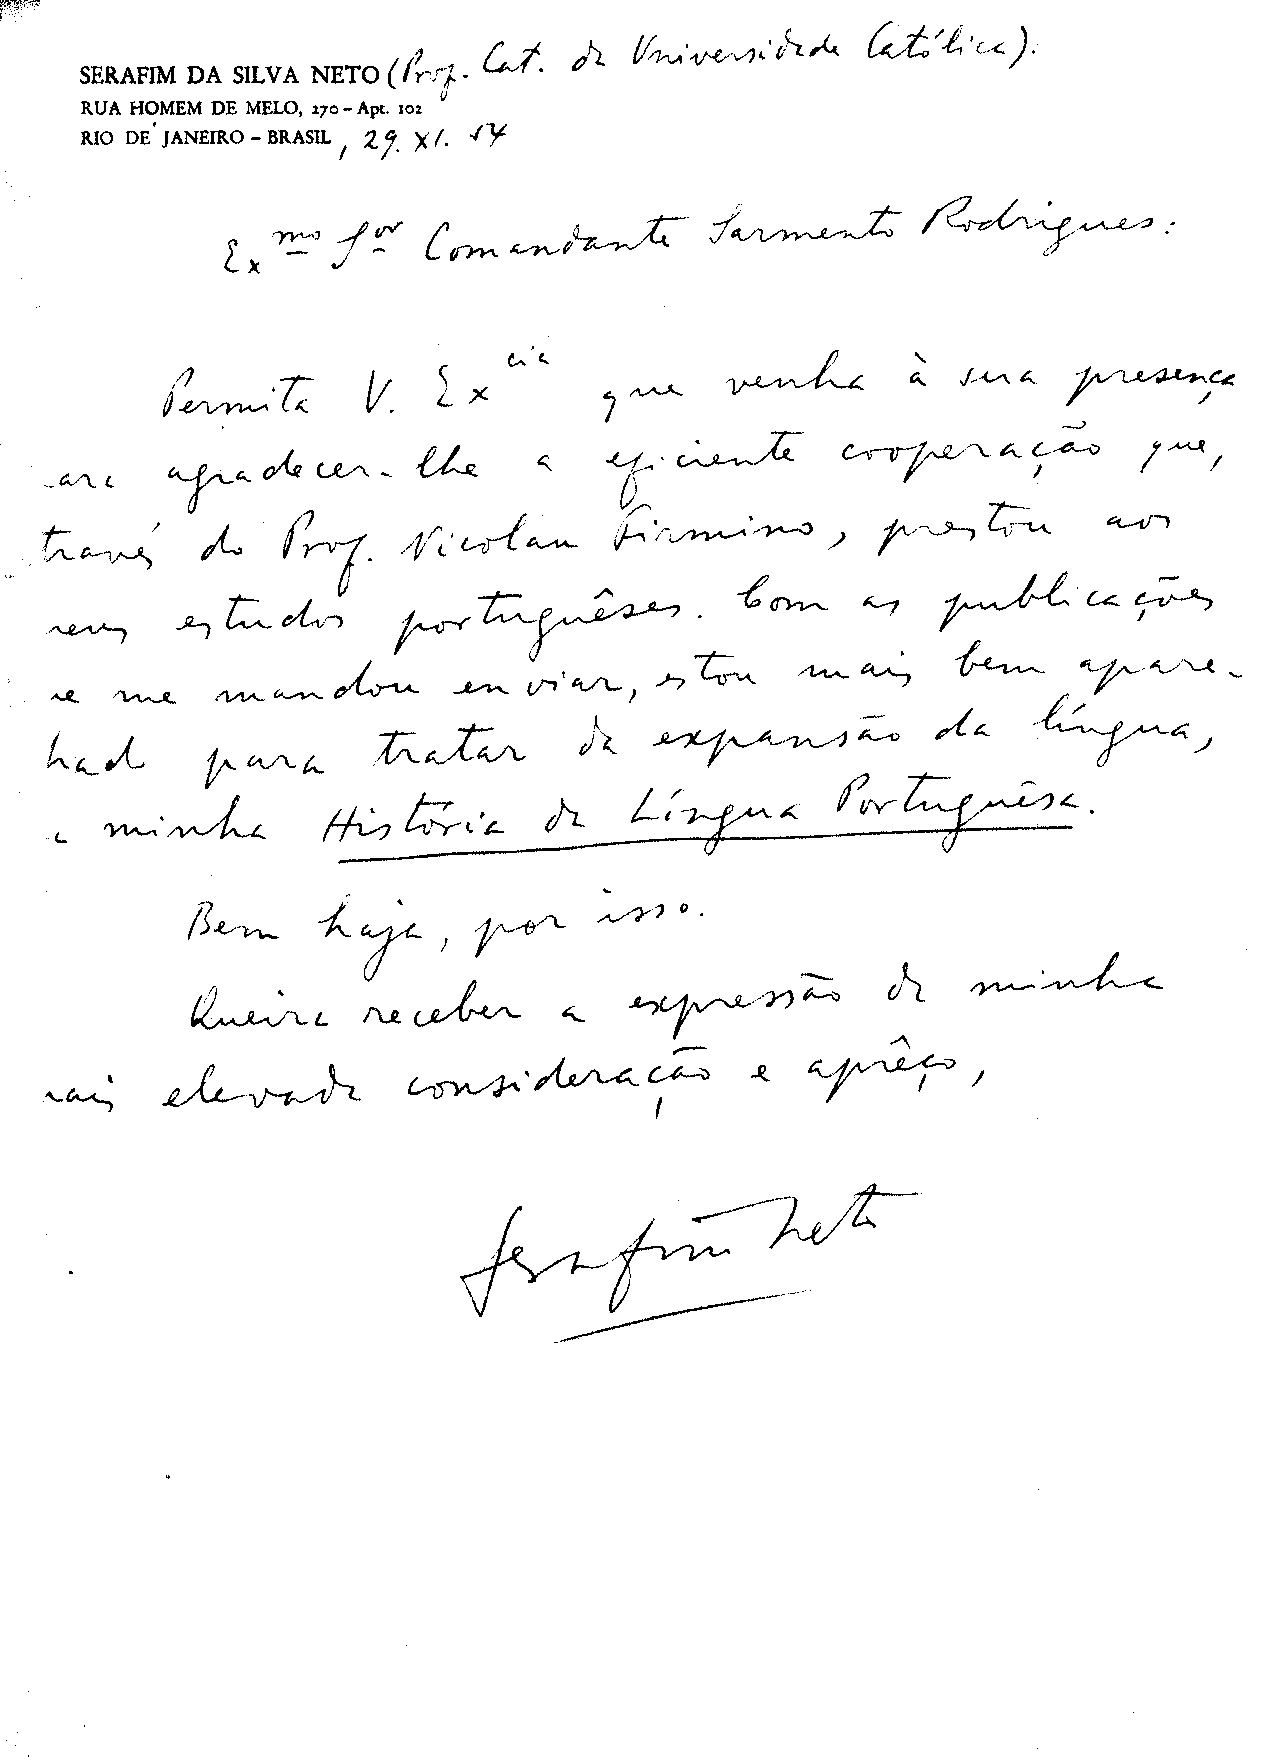 SERAFIM DA SILVA NETO (Prof. Cat. da Universidade Católica).
RUA HOMEM DE MELO, 270 – Apt. 102
RIO DE JANEIRO – BRASIL, 29. XI. 54
Exmo Sor Comandante Sarmento Rodrigues:
Permita V. Excia que venha à sua presença
ara agradecer-lhe a eficiente cooperação que,
través do Prof. Nicolau Firmino, prestou aos
meus estudos portuguêses. Com as publicações
e me mandou enviar, estou mais bem apare-
hado para tratar da expansão da língua,
a minha História da Língua Portuguêsa.
Bem haja, por isso.
Queira receber a expressão da minha
mais elevada consideração e aprêço,
Serafim Neto